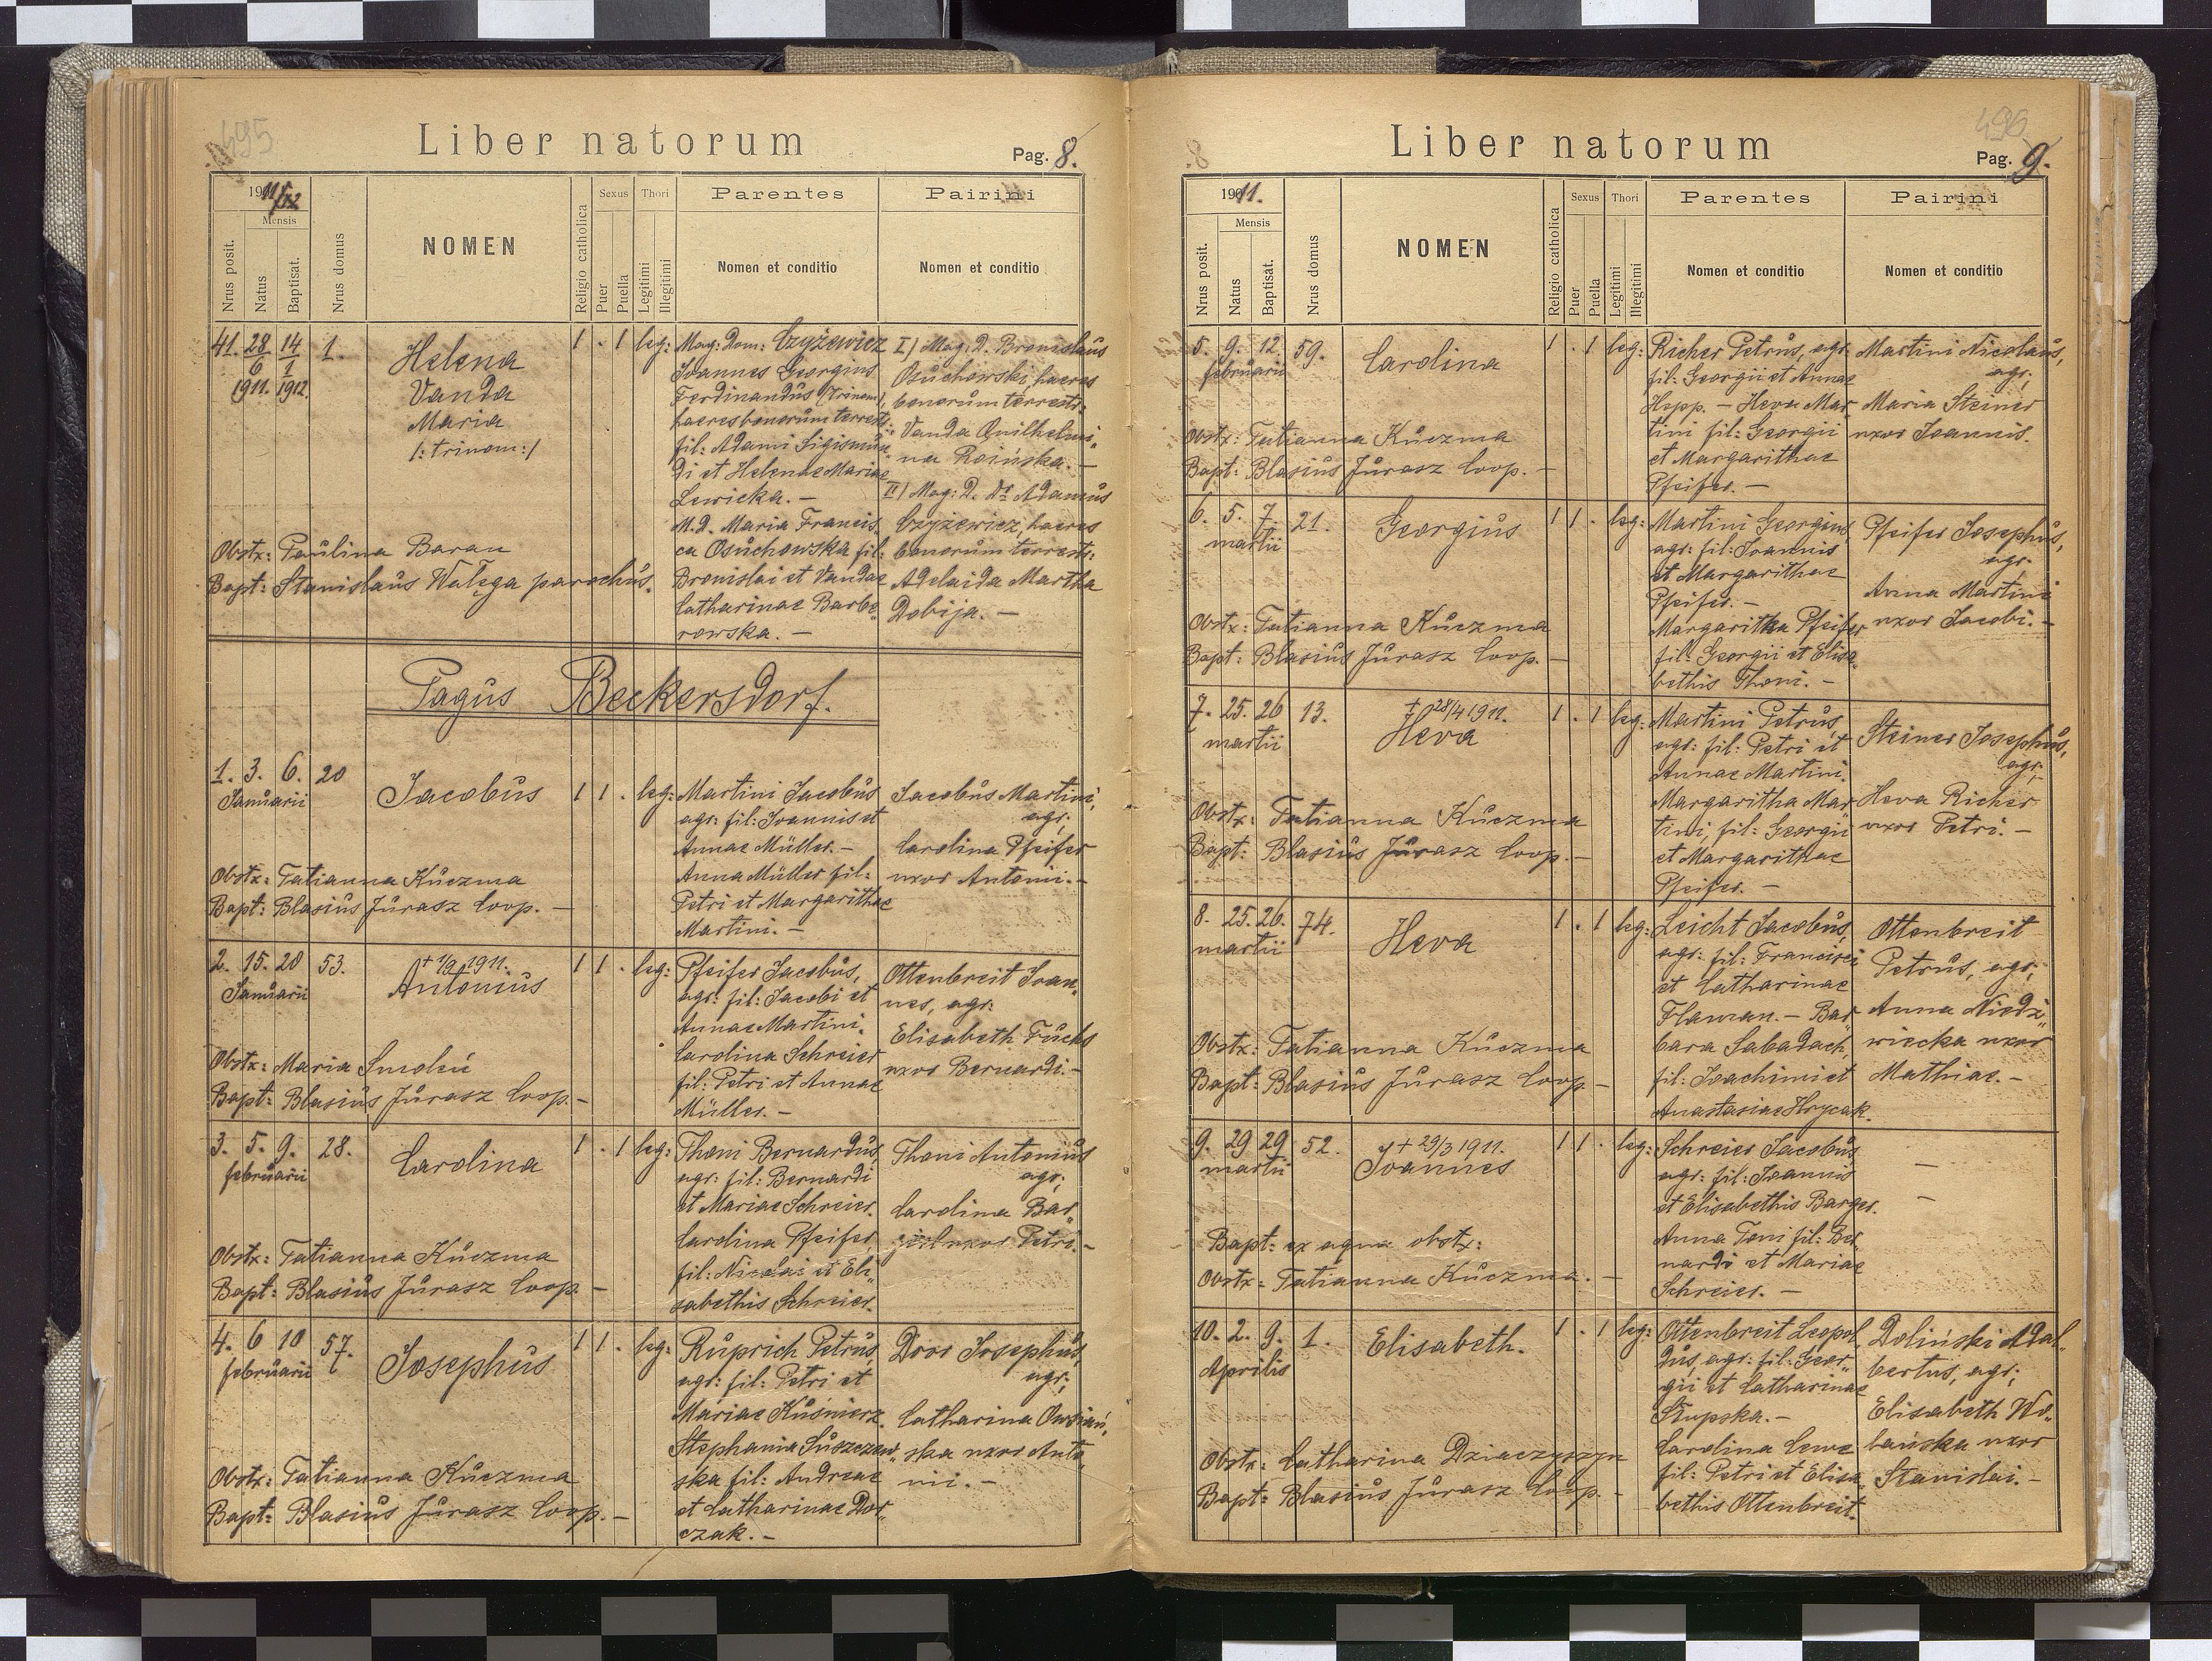 495
Liber natorum
Pag. 8.
1911/12
Mensis
Nrus posit.
Natus
Baptisat.
Nrus domus
NOMEN
Religio catholica
Sexus
Puer
Puella
Thori
Legitimi
Illegitimi
Parentes
Nomen et conditio
Patrini
Nomen et conditio
41. 28/6 1911. 14/1 1912. 1.
Helena
Vanda
Maria
/: trinom :/
1 . 1 leg:
Mag: Dom: Czyżewicz
Joannes Georgius
Ferdinandus (trinom),
haeres bonorum terrest:
fil: Adami Sigismun„
di et Helenae Mariae
Lewicka. —
M.D. Maria Francis„
ca Osuchowska fil:
Bronislai et Vandae
Catharinae Barbe„
rowska. —
I/ Mag: D. Bronislaus
Osuchowski, haeres
bonorum terrest:
Vanda Guilhelmi„
na Roińska. —
II/ Mag: D. Dr Adamus
Czyżewicz, haeres
bonorum terrest:
Adelaida Martha
Dobija. —
Obstx: Paulina Baran
Bapt: Stanislaus Wałęga parochus.
Pagus Beckersdorf.
1. 3. 6. 20
Januarii
Jacobus
1 1 . leg:
Martini Jacobus
agr: fil: Joannis et
Annae Müller. —
Anna Müller fil:
Petri et Margarithae
Martini. —
Jacobus Martini,
agr;
Carolina Pfeifer
uxor Antonii. —
Obstx: Tatianna Kuczma
Bapt: Blasius Jurasz Coop. —
2. 15. 20 53.
Januarii
+ 1/9 1911.
Antonius
1 1 . leg:
Pfeifer Jacobus,
agr: fil: Jacobi et
Annae Martini.
Carolina Schreier
fil: Petri et Annae
Müller. —
Ottenbreit Joan„
nes, agr:
Elisabeth Fuchs
uxor Bernardi. —
Obstx: Maria Smoleń
Bapt: Blasius Jurasz Coop. —
3. 5. 9. 28.
februarii
Carolina
1 . 1 leg:
Thoni Bernardus,
agr: fil: Bernardi
et Mariae Schreier.
Carolina Pfeifer
fil: Nicolai et Eli„
sabethis Schreier.
Thoni Antonius
agr;
Carolina Bar„
uxor Petri. —
Obstx: Tatianna Kuczma
Bapt: Blasius Jurasz Coop. —
4. 6 10 57.
februarii
Josephus
1 1 . leg:
Ruprich Petrus,
agr: fil: Petri et
Mariae Kuśnierz.
Stephania Suszczew„
ska fil: Andreae
et Catharinae Dor„
czak. —
Door Josephus,
agr;
Catharina Owsiań„
ska uxor Anto„
nii. —
Obstx: Tatianna Kuczma
Bapt: Blasius Jurasz Coop. —
496
Liber natorum
Pag. 9.
1911.
Mensis
Nrus posit.
Natus
Baptisat.
Nrus domus
NOMEN
Religio catholica
Sexus
Puer
Puella
Thori
Legitimi
Illegitimi
Parentes
Nomen et conditio
Patrini
Nomen et conditio
5. 9. 12. 59.
februarii
Carolina
1 . 1 leg:
Richer Petrus, agr.
fil: Georgii et Annae
Hepp. — Heva Mar„
tini fil: Georgii
et Margarithae
Pfeifer. —
Martini Nicolaus,
agr;
Maria Steiner
uxor Joannis.
Obstx: Tatianna Kuczma
Bapt: Blasius Jurasz Coop. —
6. 5. 7. 21.
martii
Georgius
1 1 . leg:
Martini Georgius
agr: fil: Joannis
et Margarithae
Pfeifer. —
Margaritha Pfeifer
fil: Georgii et Elisa„
bethis Thoni. —
Pfeifer Josephus,
agr.
Anna Martini
uxor Jacobi. —
Obstx: Tatianna Kuczma
Bapt: Blasius Jurasz Coop. —
7. 25. 26 13.
martii
+ 28/4 1911.
Heva
1 . 1 leg:
Martini Petrus,
agr: fil: Petri et
Annae Martini.
Margaritha Mar„
tini, fil: Georgii
et Margarithae
Pfeifer. —
Steiner Josephus,
agr;
Heva Richer
uxor Petri. —
Obstx: Tatianna Kuczma
Bapt: Blasius Jurasz Coop. —
8. 25. 26. 74.
martii
Heva
1 . 1 leg:
Leicht Jacobus,
agr: fil: Francisci
et Catharinae
Flaman. — Bar„
bara Sabadach,
fil: Joachimi et
Anastasiae Hrycak.
Ottenbreit
Petrus, agr;
Anna Niedź„
wiecka uxor
Mathiae. —
Obstx: Tatianna Kuczma
Bapt: Blasius Jurasz Coop —
9. 29 29 52.
martii
+ 29/3 1911.
Joannes
1 1 . leg:
Schreier Jacobus
agr: fil: Joannis
et Elisabethis Barger.
Anna Toni fil: Ber„
nardi et Mariae
Schreier. —
—
—
Bapt: ex aqua obstx:
Obstx: Tatianna Kuczma. —
10. 2. 9. 1.
Aprilis
Elisabeth.
1 . 1 leg:
Ottenbreit Leopol„
dus, agr: fil: Geor„
gii et Catharinae
Słupska. —
Carolina Lewe
fil: Petri et Elisa„
bethis Ottenbreit.
Doliński Adal„
bertus, agr;
Elisabeth Wo„
bańska uxor
Stanislai. —
Obstx: Catharina Dziaczyszyn
Bapt: Blasius Jurasz Coop. —